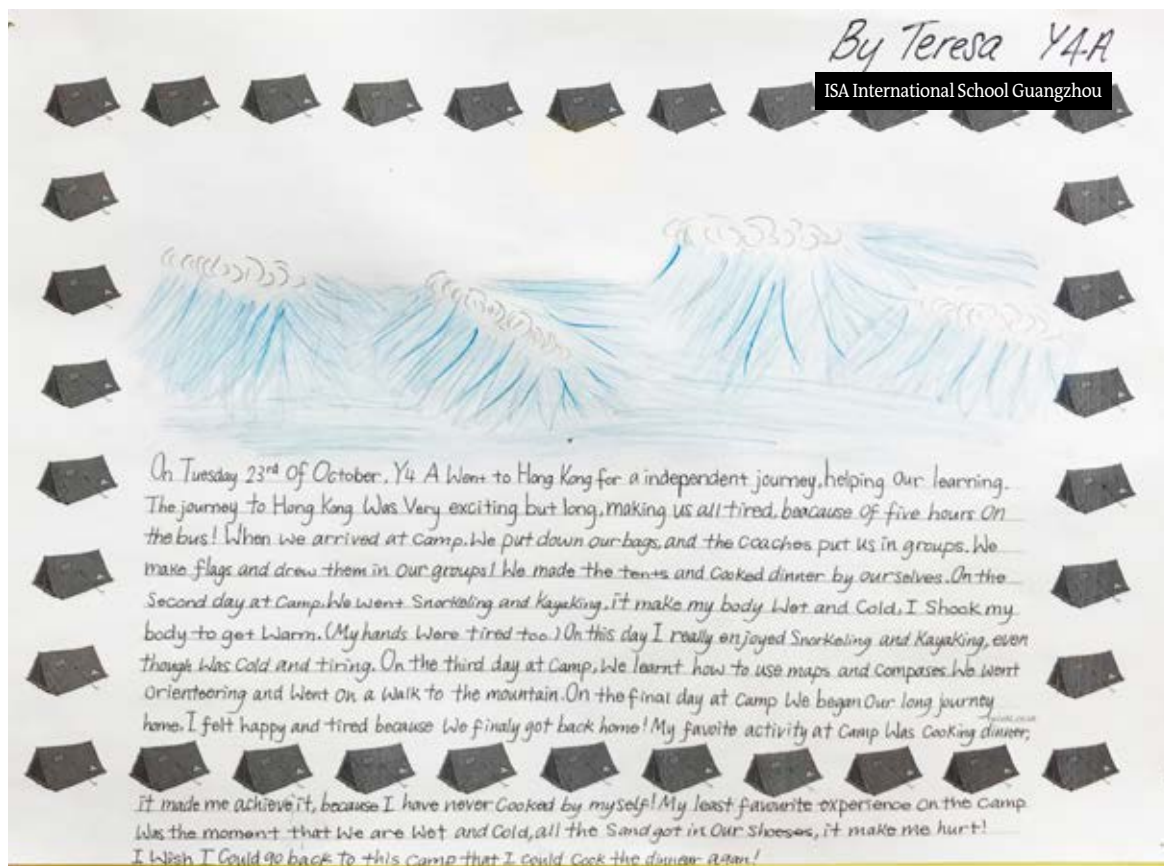 By Teresa Y4-A
ISA International School Guangzhou
On Tuesday 23rd Of October. Y4 A Went to Hong Kong for a independent journey, helping Our learning.
The journey to Hong Kong Was Very exciting but long, making us all tired, beacause Of five hours On
the bus! When we arrived at camp. We put down our bags, and the coaches put us in groups. We
make flags and drew them in our groups! We made the tents and Cooked dinner by ourselves. On the
Second day at Camp. We went Snorkeling and Kayaking, it make my body Wet and Cold, I Shook my
body to get Warm. (My hands Were tired too.) On this day I really enjoyed Snorkeling and Kayaking, even
though Was Cold and tiring. On the third day at Camp, We learnt how to use maps and compases. We went
Orienteering and Went On a Walk to the mountain. On the final day at Camp We began Our long journey
home. I felt happy and tired because We finaly got back home! My favoite activity at Camp Was Cooking dinner,
it made me achieve it, because I have never Cooked by myself! My least favourite experience On the Camp
Was the moment that We are Wet and Cold, all the Sand got in Our Shoeses, it make me hurt!
I Wish I Could go back to this Camp that I could Cook the dinnear agan!